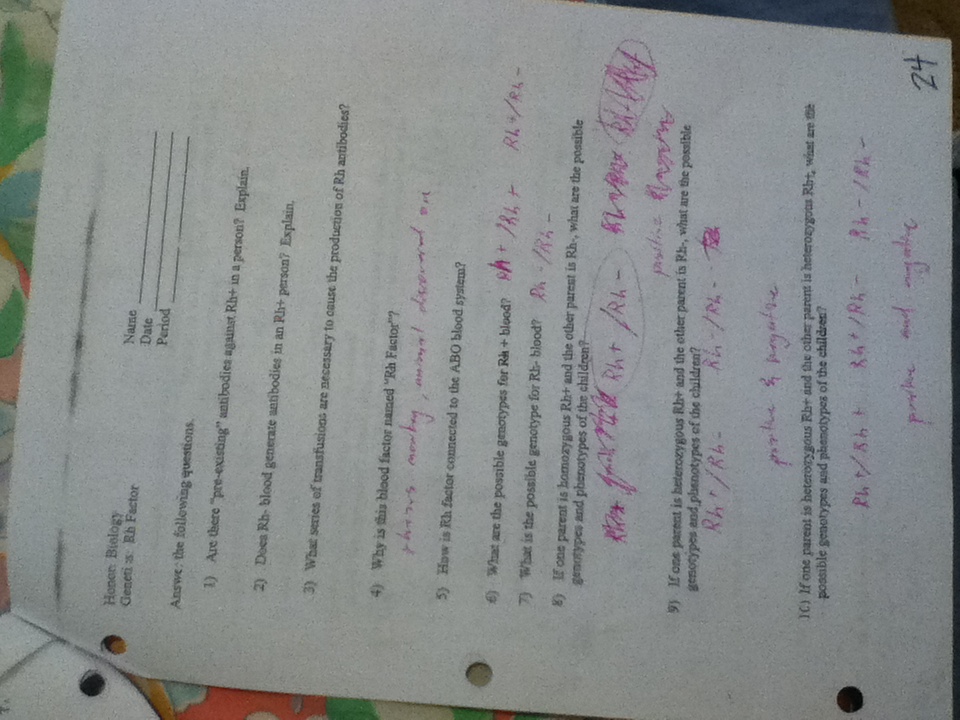 Honors Biology
Genetics: Rh Factor
Name
Date
Period
Answer the following questions.
1) Are there "pre-existing" antibodies against Rh+ in a person? Explain.
2) Does Rh- blood generate antibodies in an Rh+ person? Explain.
3) What series of transfusions are necessary to cause the production of Rh antibodies?
4) Why is this blood factor named "Rh Factor"?
monkey, animal discovered on
5) How is Rh factor connected to the ABO blood system?
6) What are the possible genotypes for Rh + blood? Rh+/Rh+ Rh+/Rh-
7) What is the possible genotype for Rh- blood? Rh-/Rh-
8) If one parent is homozygous Rh+ and the other parent is Rh-, what are the possible
genotypes and phenotypes of the children?
Rh+/Rh-
positive
9) If one parent is heterozygous Rh+ and the other parent is Rh-, what are the possible
genotypes and phenotypes of the children?
Rh+/Rh- Rh-/Rh-
positive & negative
10) If one parent is heterozygous Rh+ and the other parent is heterozygous Rh+, what are the
possible genotypes and phenotypes of the children?
Rh+/Rh+ Rh+/Rh- Rh-/Rh-
positive and negative
24